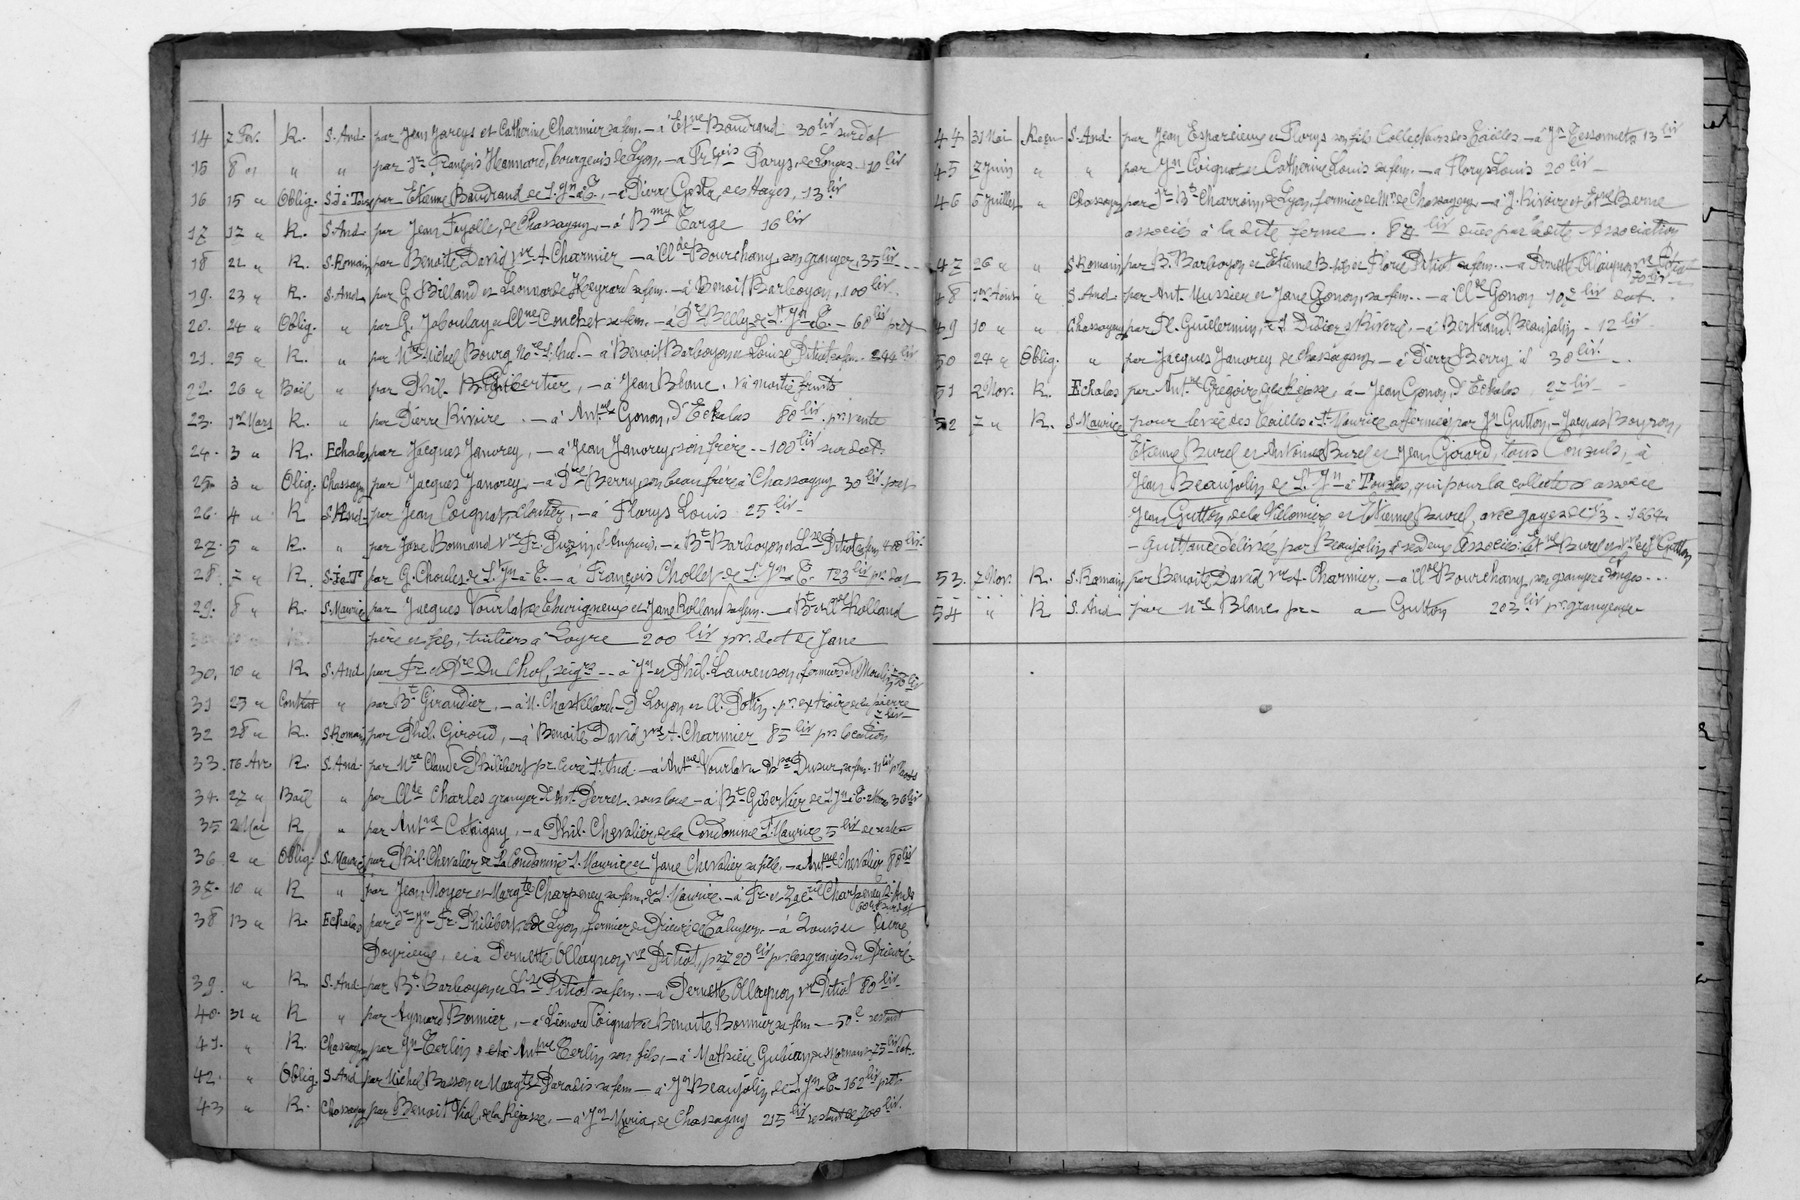 14 7 Fev. R. S. And. par Jean Jareys et Catherine Charmier sa fem. — à Et^ne Baudrand 30 liv sur dot
15 8 " " " par S^r François Hannard, bourgeois de Lyon, — à Fr^çois Parys, de Longes 10 liv
16 15 " Oblig. S.J. à Touse par Etienne Baudrand de S. J^n à T., — à Pierre Costa, des Hayes, 13 liv
17 17 " R. S. And. par Jean Fayolle, de Chassagny — à B^my Targe 16 liv
18 21 " R. S. Romain par Benoite David v^ve A. Charmier — à Cl^de Bourchany, son granger, 35 liv
19. 23 " R. S. And. par G. Billand et Leonarde Heyrard sa fem. — à Benoit Barboyon, 100 liv.
20. 24 " Oblig. " par G. Jaboulay et Cl^ne Couchet sa fem. — à P^re Belly, de S^t J^n à T. — 60 liv prêt
21. 25 " R. " par M^tre Michel Bourg No^re S. And. — à Benoit Barboyon et Louise Pitiot sa fem. 244 liv
22. 26 " Bail " par Phil. Gibertier, — à Jean Blanc. à moitié fruits
23. 1^er Mars R. " par Pierre Rivoire. — à Ant^ne Gonon, d'Echalas 80 liv. pr. vente
24. 3 " R. Echalas par Jacques Janorey, — à Jean Janorey, son frère — 100 liv sur dots
25. 3 " Olig. Chassagny par Jacques Janorey. — à P^re Berry, son beau frère à Chassagny 30 liv. prêt
26. 4 " R S. And. par Jean Coignat, cloutier, — à Florys Louis 25 liv
27. 5 " R. " par Jane Bonnand v^ve Fr. Puzin, d'Ampuis. — à B^t Barboyon et L^se Pitiot sa fem, 400 liv.
28. 7 " R S. J. à T^e par G. Choules de S^t J^n à T. — à François Chollet de S^t J^n à T. 123 liv pr. dot
29. 8 " R. S. Maurice par Jacques Vourlat de Chuvigneux et Jane Rolland sa fem. — B^t et Cl^de Rolland
père et fils, tuiliers à Loyre 200 liv pr. dot de Jane
30. 10 " R S. And par Fr. et P^re Du Chol, seig^rs — à J^n et Phil. Laurenson, fermiers du Moulin
31 23 " Contrat " par B^t Girandier, — à N. Chastellard D Loyon et A. Pottin. pr. extraire de la pierre
7 liv
32 28 " R. S. Romain par Phil. Giroud, — à Benoite David v^ve A. Charmier 85 liv pr. location
33. 16 Avr. R. S. And. par M^re Claude Philibert pr. curé S^t And. — à Ant^ne Vourlat sa fem. 11 liv
34. 27 " Bail " par Cl^de Charles granger d'Ant. Perret. sous loue — à B^t Gibertier de S J^n à T. 36 liv
35 2 Mai R " par Ant^ne Cotsigny, — à Phil. Chevalier, de la Condamine S^t Maurice 5 liv de reste
36. 2 " Oblig. S. Maurice par Phil. Chevalier de la Condamine S. Maurice et Jane Chevalier sa fille. — à Ant^ne Chevalier 80 liv
37. 10 " R " par Jean Noyer et Marg^te Charpeney sa fem, de S Maurice. — à Fr. et Zac^rie Charpeney
38 13 " R. Echalas par S^r J^n Fr. Philibert de Lyon, fermier du Prieuré de Taluyers. — à Louis
Poyrieux, et à Pernette Ollagnon v^ve Pitiot, pr. 720 liv pr. les granges du Prieuré
39. " R S. And. par B^t Barboyon et L^se Pitiot sa fem. — à Pernette Ollagnon v^ve Pitiot 80 liv
40. 31 " R " par Aymard Bonnier, — à Léonard Coignat et Benoite Bonnier sa fem — 50 l restant
41. " R. Chassagny par J^n Terlin et Ant^ne Terlin son fils, — à Mathieu Gubian, de Mornant 75 liv dot
42. " Oblig. S. And. par Michel Basson et Marg^te Paradis sa fem — à J^n Beaujolin, de S J^n à T. 162 liv prêt
43 " R. Chassagny par Benoit Vial, de la Rejasse. — à J^n Myria, de Chassagny 215 liv restant de 700 liv.
44 31 Mai Reçu S. And. par Jean Esparcieux et Florys son fils Collecteurs des Tailles — à J^n Tessonnets 13 liv
45 7 Juin " " par J^n Coignat et Catherine Louis sa fem. — à Florys Louis 20 liv
46 6 Juillet " Chassagny par S^r B^t Charroin, de Lyon, fermier de M^rs de Chassagny — à J. Rivoire et Et^ne Berne
associé à la dite ferme. 87 liv dues par ladite association
47 26 " " S. Romain par B. Barboyon et Etienne B. fils et Florie Pitiot sa fem. — à Pernette Ollagnon v^ve Pitiot
70 liv
48 1^er Août " S. And. par Ant. Mussier et Jane Gonon, sa fem. — à Cl^de Gonon 107 liv dot.
49 10 " " Chassagny par Pl. Guillermin, de S Didier s Riverie, — à Bertrand Beaujolin — 12 liv
50 24 " Oblig. " par Jacques Janorey de Chassagny — à Pierre Berry id 38 liv.
51 2 Nov. R. Echalas par Ant^ne Grégoire — à Jean Gonon, d'Echalas 27 liv
52 7 " R. S. Maurice pour levée des tailles S^t Maurice affermées par J^n Gutton, Jacques Boyron,
Etienne Burel et Antoine Burel et Jean Girard, tous Consuls, à
Jean Beaujolin de S^t J^n à Touzlas, qui pour la collecte s'associe
Jean Gutton, de la Villonnière et Etienne Burel, avec gages de 1664.
— quittance délivrée par Beaujolin et ses deux Associés: Et^ne Burel et J^n Gutton
53. 7 Nov. R. S. Romain, par Benoite David v^ve A. Charmier. — à Cl^de Bourchany, son granger à Longes...
54 " R S. And par M^re Blanc pr. à — Gutton 203 liv pr. grangeage